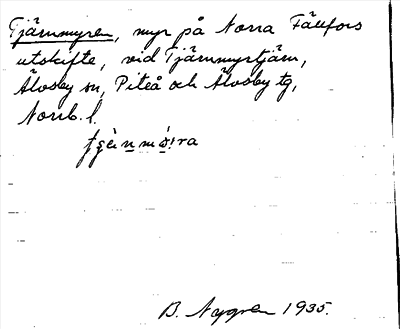 Tjärnmyren, myr på Norra Fällfors
utskifte, vid Tjärnmyrtjärn,
Älvsby sn, Piteå och Älvsby tg,
Norrb. l.
B. Nygren 1935.